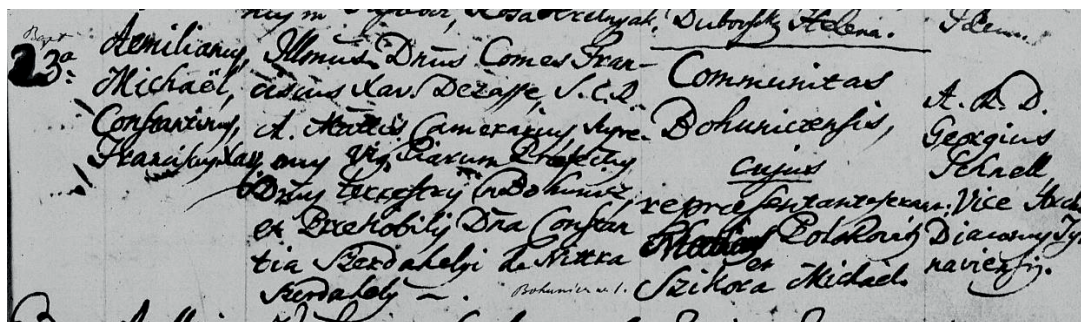 Rosa
Dubovsky Helena.
Idem.
Bapt
23a.
Aemilianus,
Michaël,
Constantinus,
Franciscus Xav
Illmus Dnus Comes Fran-
ciscus Xav. Dezasse, S.C.R.
A. Mattis Camerarius, Supre-
mus Vig. Piarum
Dnus terrestris in Bohunicz
et Praenobilis Dna Constan
tia Szerdahelyi de Nittra
Szerdahely -.
Bohunicz
Communitas
Bohunicensis,
cujus
repraesentant
Polakovits
et
Szikora Michaël.
A. R. D.
Georgius
Schnell,
Vice Archi
Diaconus Ty
naviensis.